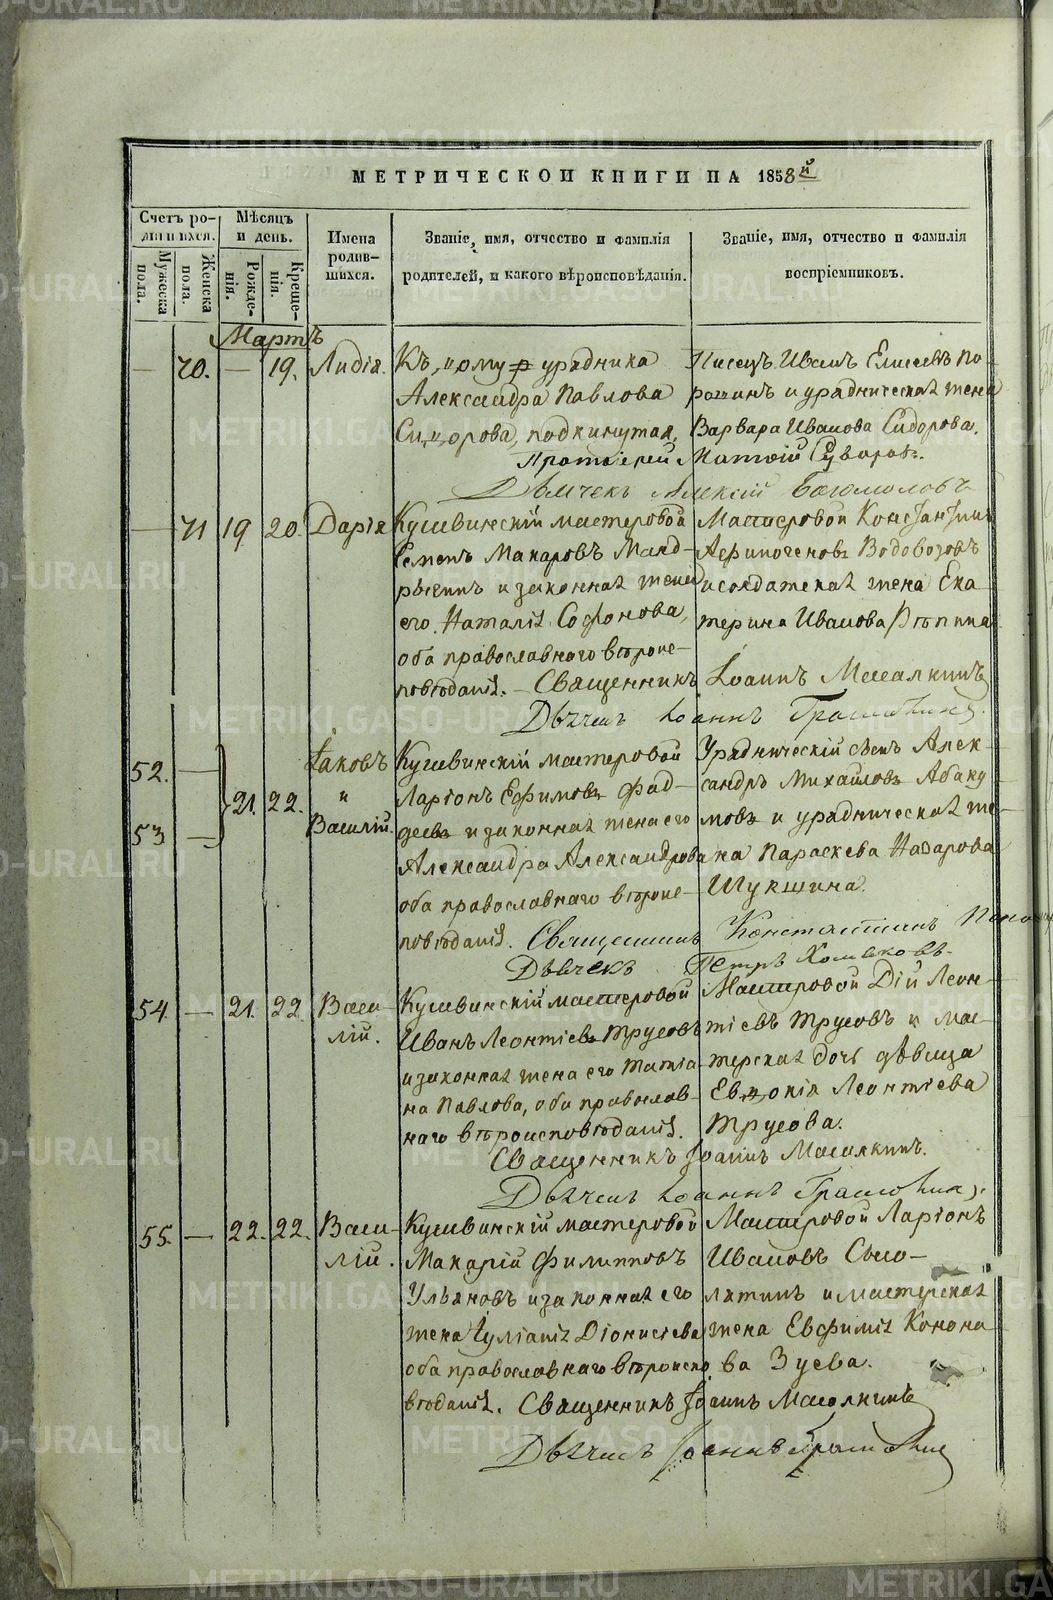 МЕТРИЧЕСКОЙ КНИГИ НА 1858й
Счетъ родившихся.
Мужеска пола.
Женска пола.
Мѣсяцъ и день.
Рожденія.
Крещенія.
Имена родившихся.
Званіе, имя, отчество и фамилія
родителей, и какого вѣроисповѣданія.
Званіе, имя, отчество и фамилія
воспріемниковъ.
Мартъ
— 70. — 19. Лидія.
Къ дому урядника
Александра Павлова
Сидорова, подкинутая.
Писецъ Иванъ Елисеевъ По-
рошинъ и урядническая жена
Варвара Иванова Сидорова.
Протоіерей Матѳій Суворовъ.
Дьячекъ Алексій Богомоловъ
— 71 19 20. Дарія
Кушвинскій мастеровой
Семенъ Макаровъ Манд-
рыгинъ и законная жена
его Наталія Софонова,
оба православнаго вѣроис-
повѣданія. — Священникъ Іоаннъ Масалкинъ
Мастеровой Константинъ
Аѳиногеновъ Водовозовъ
и солдатская жена Ека-
терина Иванова Рѣпина
Дьячекъ Іоаннъ
52. —
53 —
21. 22.
Іаковъ
и
Василій.
Кушвинскій мастеровой
Ларіонъ Ефимовъ Фад-
деевъ и законная жена его
Александра Александрова
оба православнаго вѣроис-
повѣданія. Священникъ Константинъ
Урядническій сынъ Алек-
сандръ Михаиловъ Абаку-
мовъ и урядническая же-
на Параскева Назарова
Шукшина.
Дьячекъ Петръ Хомяковъ.
54. — 21. 22. Васи-
лій.
Кушвинскій мастеровой
Иванъ Леонтіевъ Трусовъ
и законная жена его Татіа-
на Павлова, оба православ-
наго вѣроисповѣданія.
Мастеровой Дій Леон-
тіевъ Трусовъ и мас-
терская дочь дѣвица
Евдокія Леонтіева
Трусова.
Священникъ Іоаннъ Масалкинъ.
Дьячекъ Іоаннъ
55. — 22. 22. Васи-
лій.
Кушвинскій мастеровой
Макарій Филипповъ
Ульяновъ и законная его
жена Іуліанія Діонисіева
оба православнаго вѣроиспо
вѣданія. Священникъ Іоаннъ Масалкинъ
Мастеровой Ларіонъ
Ивановъ Сысо-
лятинъ и мастерская
жена Евфимія Конона-
ва Зуева.
Дьячекъ Іоаннъ
METRIKI.GASO-URAL.RU